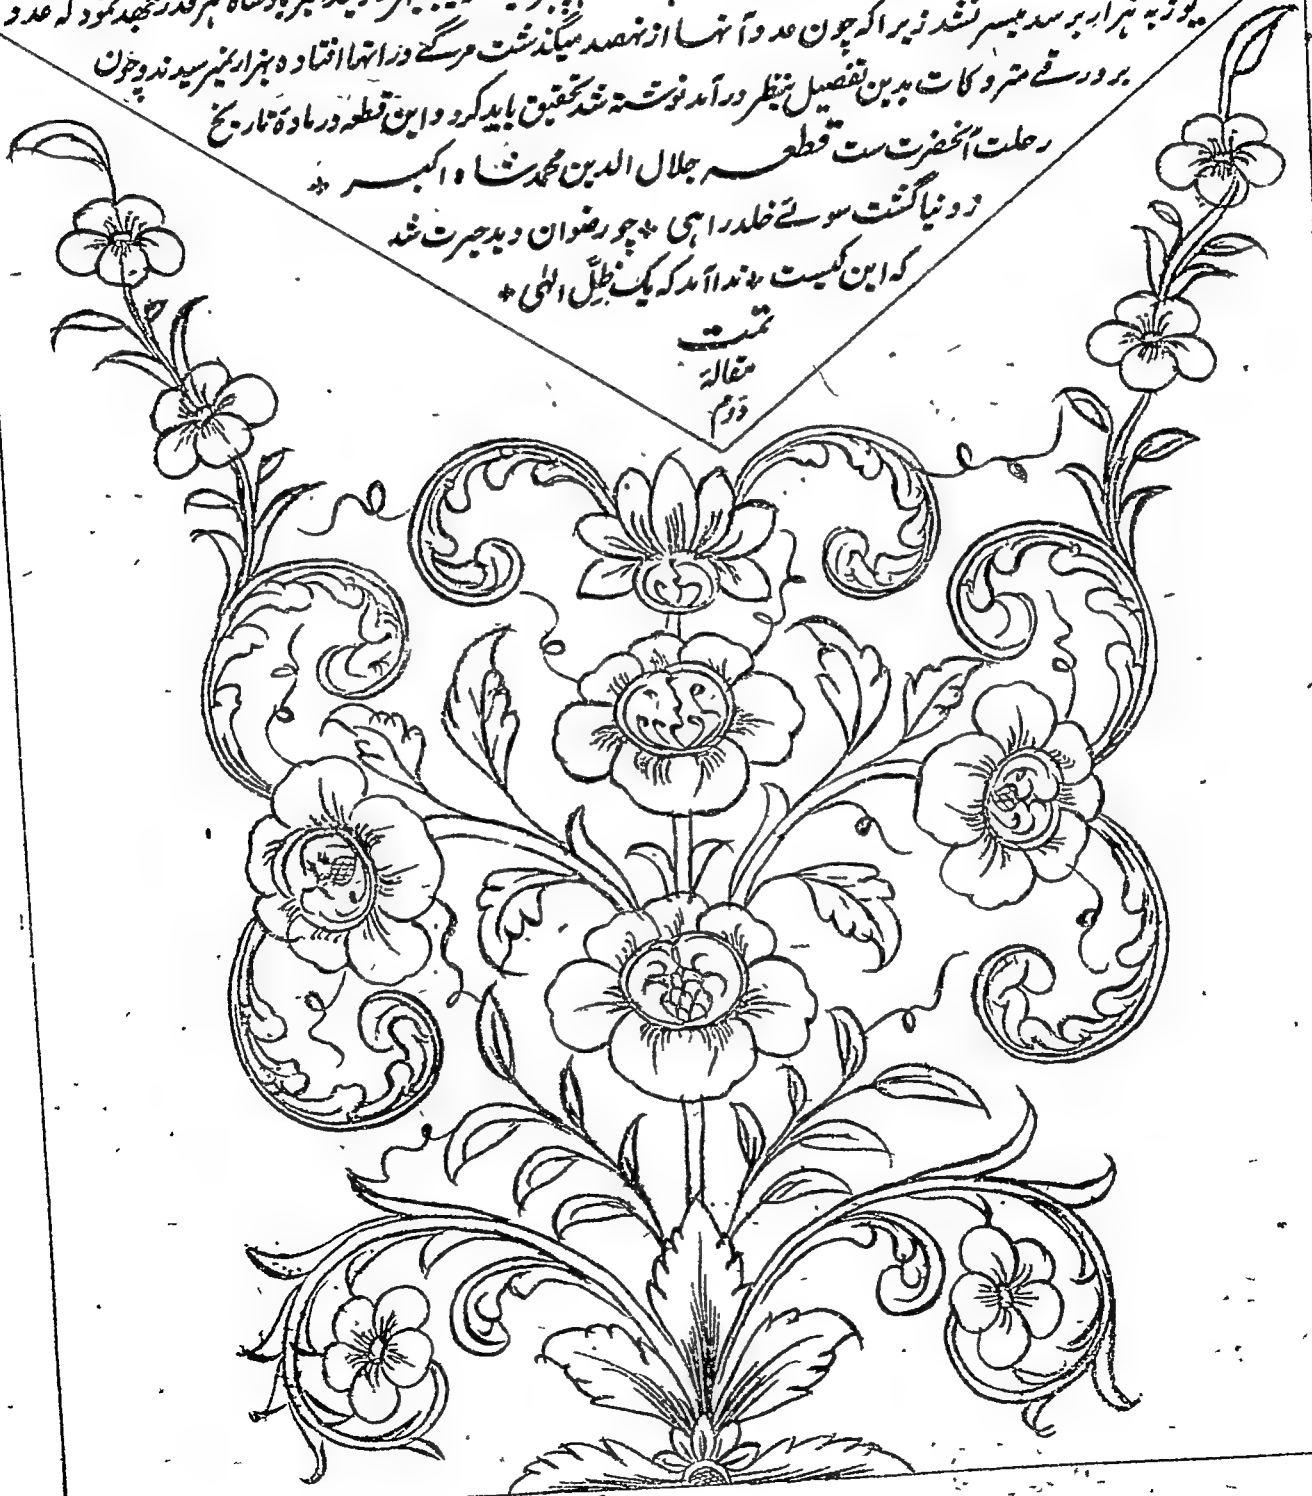 یوز به هزار بر سد میسر نشد زیرا که چون عدد آنها از نهصد میگذشت مرگے در انها افتاده بهزار نمیرسیدند و چون
بر ورقے متروکات بدین تفصیل بنظر در آمد نوشته شد تحقیق باید کرد و این قطعه در مادۀ تاریخ
رحلت آنحضرت ست قطعه جلال الدین محمد شاه اکبر *
ز دنیا گشت سوئے خلد راهی * چو رضوان دید حیرت شد
که این کیست * ندا آمد که یک ظلِّ الٰهی *
تمت
مقالۀ
دوم